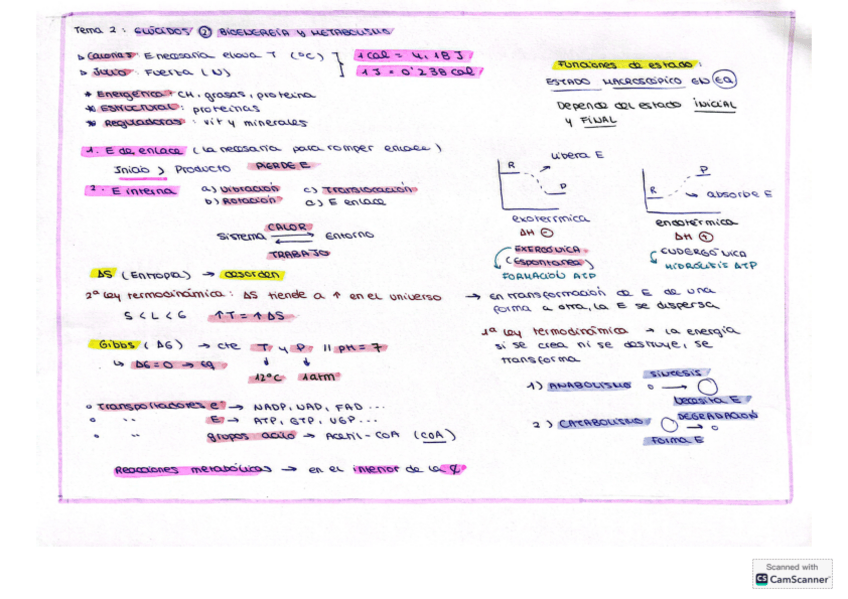 Tema 2 : GLÚCIDOS ② BIOENERGÍA Y METABOLISMO
▹ Calorías : E necesaria eleva T (ºC)
▹ Julio : Fuerza (N)
1 cal = 4,18 J
1 J = 0'238 cal
* Energética → CH, grasas, proteína
* ESTRUCTURAL : proteínas
* Reguladoras : vit y minerales
Funciones de estado :
ESTADO MACROSCÓPICO EN EQ
Depende del estado INICIAL
y FINAL
1. E de enlace ( la necesaria para romper enlace )
Inicio > Producto PIERDE E
2. E interna a) Vibración c) Translocación
b) Rotación d) E enlace
CALOR
Sistema ⇄ Entorno
TRABAJO
R Libera E
P
exotérmica
ΔH ⊖
EXERGÓNICA
(Espontánea)
FORMACIÓN ATP
P
R absorbe E
endotérmica
ΔH ⊕
ENDERGÓNICA
HIDRÓLISIS ATP
ΔS (Entropía) → desorden
2ª Ley termodinámica : ΔS tiende a ↑ en el universo → en transformación de E de una
forma a otra, la E se dispersa
S < L < G ↑T = ↑ΔS
Gibbs ( ΔG) → cte T y P // pH = 7
↳ ΔG = 0 → eq
12ºC 1 atm
1ª Ley termodinámica → la energía
si se crea ni se destruye, se
transforma
1) ANABOLISMO SÍNTESIS
Necesita E
2) CATABOLISMO DEGRADACIÓN
Forma E
o Transportadores e⁻ → NADP, NAD, FAD ...
o " E → ATP, GTP, UGP...
o " grupos acilo → Acetil-CoA (CoA)
Reacciones metabólicas → en el interior de la
Scanned with
CS CamScanner